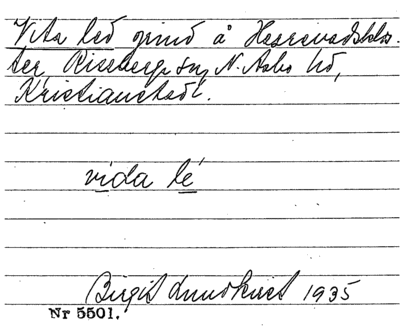 Vita led grind å Herrevadsklos-
ter, Riseberga sn, N. Åsbo hd,
Kristianstads l.
vida lé
Birgit Lundkvist 1935
Nr 5501.